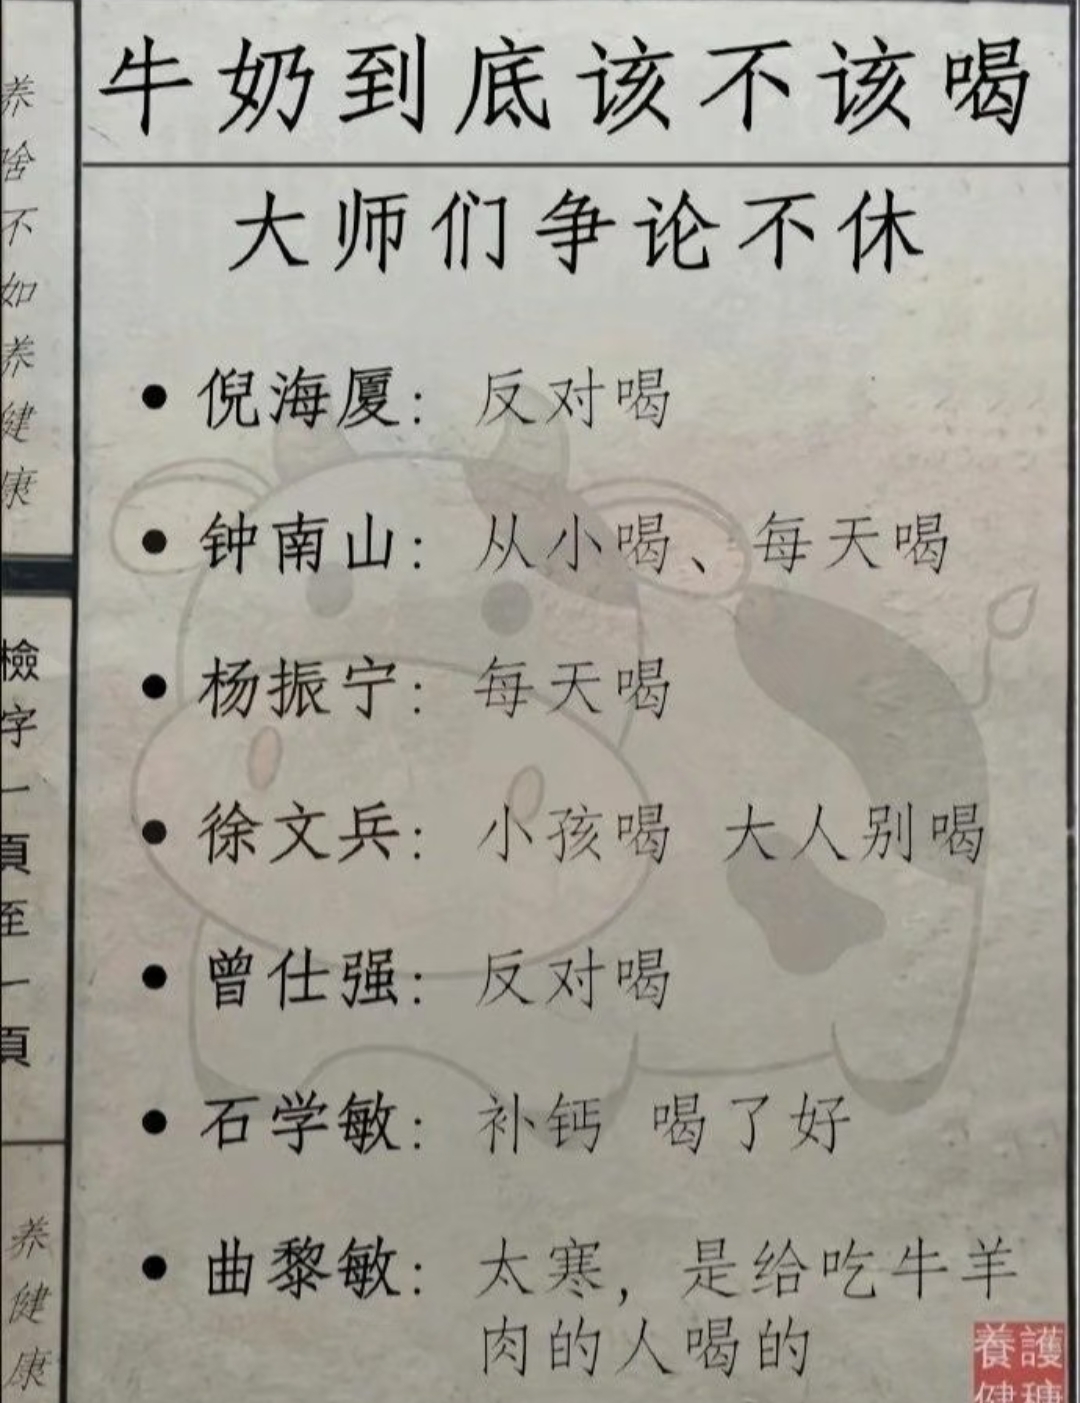 牛奶到底该不该喝
大师们争论不休
• 倪海厦：反对喝
• 钟南山：从小喝、每天喝
• 杨振宁：每天喝
• 徐文兵：小孩喝 大人别喝
• 曾仕强：反对喝
• 石学敏：补钙 喝了好
• 曲黎敏：太寒，是给吃牛羊
肉的人喝的
养啥不如养健康
檢字一頁至一頁
养健康
養護
健